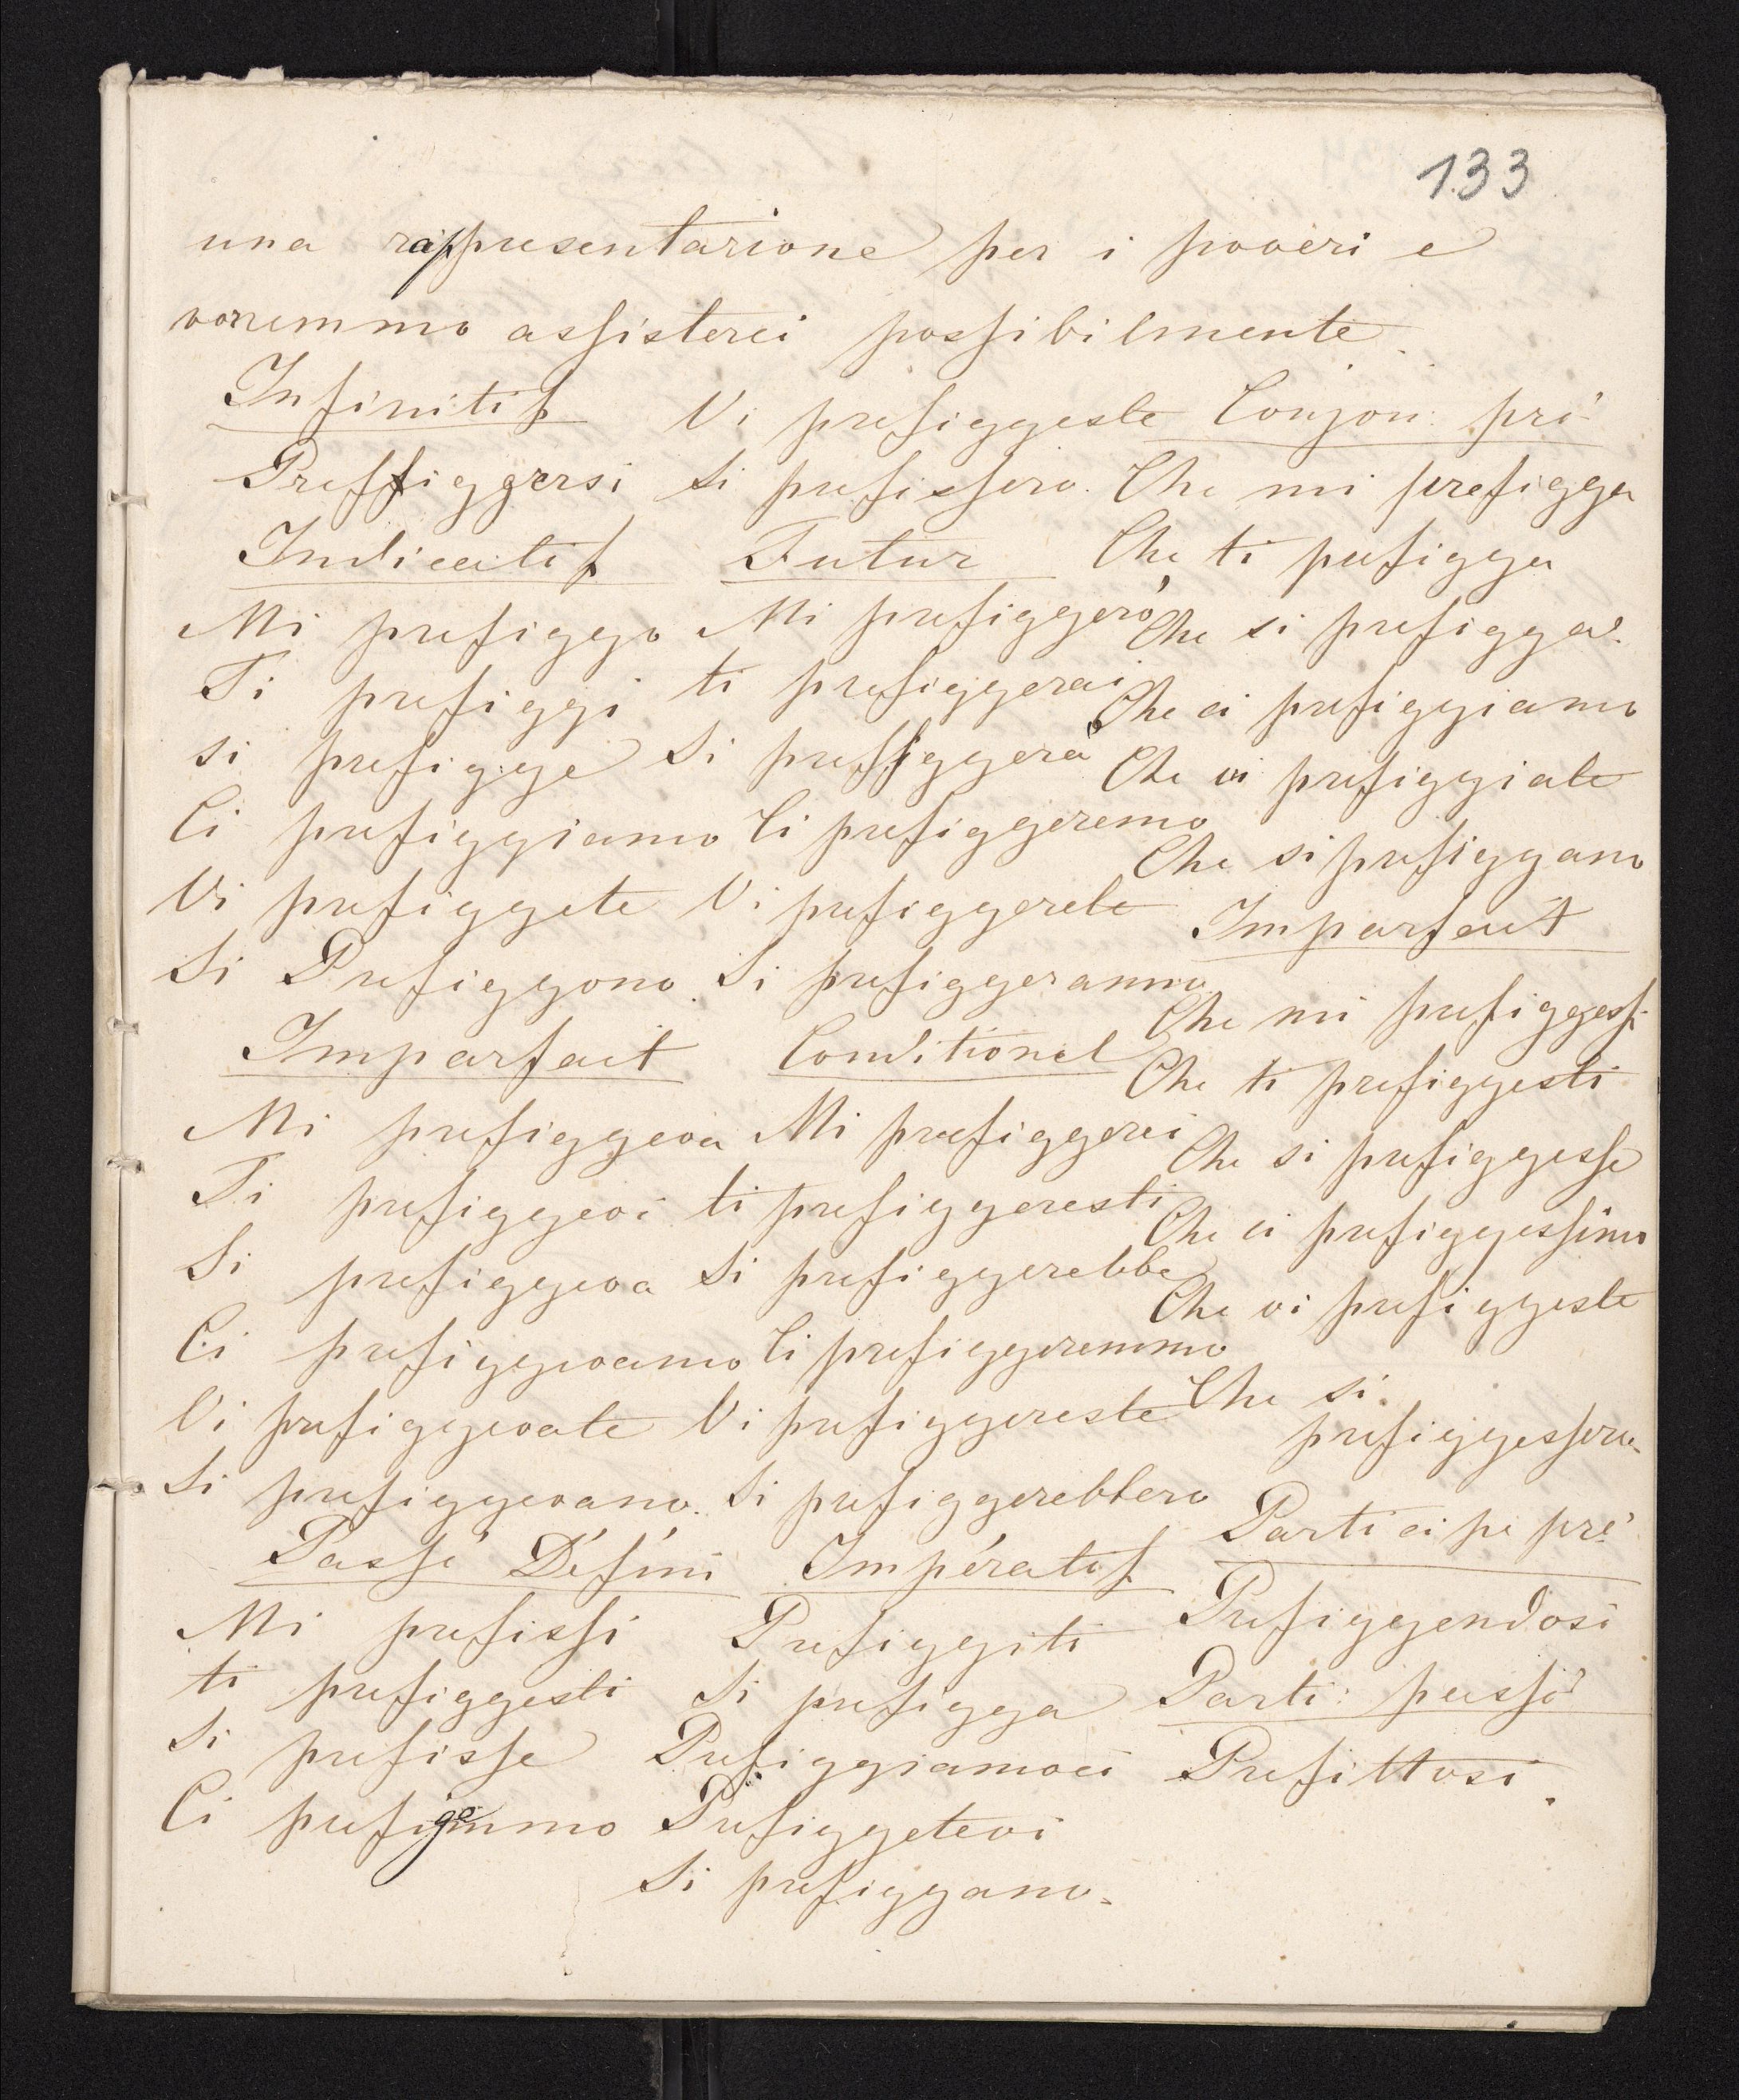 133
una rappresentazione per i poveri e
vorremmo assisterci possibilmente.
Infinitif
Preffiggersi
Indicatif
Mi prefiggo
Ti prefiggi
si prefigge
Ci prefiggiamo
Vi prefiggete
Si Prefiggono.
Imparfait
Mi prefiggeva
Ti prefiggevi
Si prefiggeva
Ci prefiggevamo
Vi prefiggevate
Si prefiggevano.
Passé Défini
Mi prefissi
ti prefiggesti
Si prefisse
Ci prefigemmo
Vi prefiggeste
Si prefissero.
Futur
Mi prefiggerò
ti prefiggerai
Si preffiggerà
Ci prefiggeremo
Vi prefiggerete
Si prefiggeranno.
Conditionel
Mi prefiggerei
ti prefiggeresti
Si prefiggerebbe
Ci prefiggeremmo
Vi prefiggereste
Si prefiggerebbero
Impératif
Prefiggiti
Si prefigga
Prefiggiamoci
Prefiggetevi
Si prefiggano.
Conjon: pré
Che mi prefigga
Che ti prefigga
Che si prefigga.
Che ci prefiggiamo
Che vi prefiggiate
Che si prefiggano
Imparfait
Che mi prefiggessi
Che ti prefiggesti
Che si prefiggesse
Che ci prefiggessimo
Che vi prefiggeste
Che si
prefiggessero.
Participe pré:
Prefiggendosi
Parti: passé
Prefittosi.